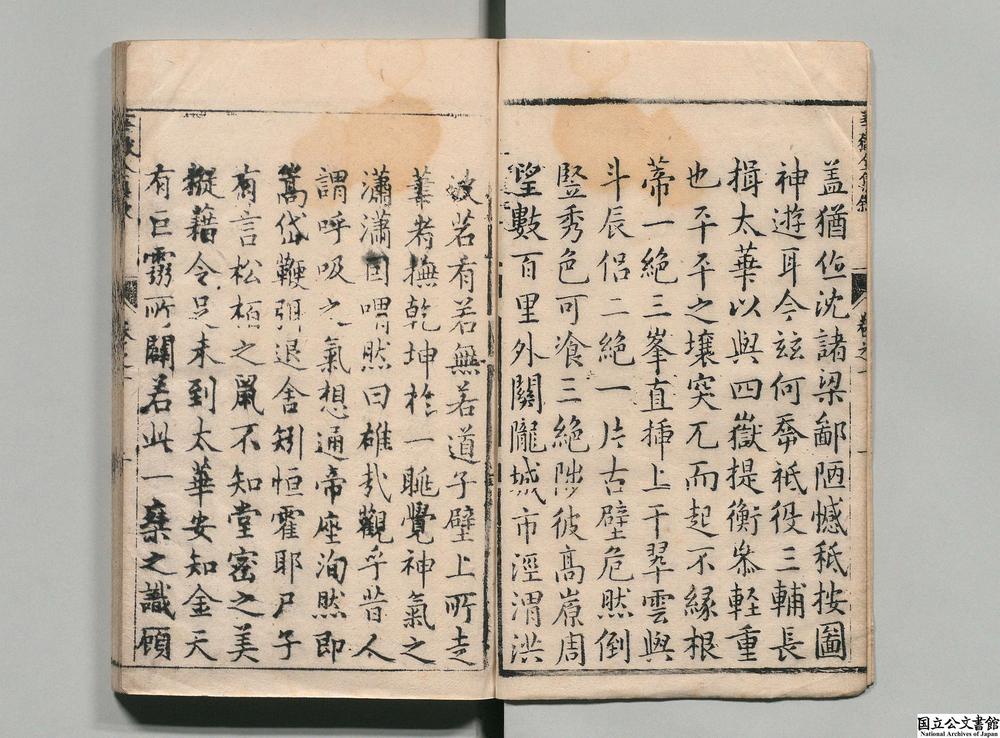 蓋猶伯沈諸梁鄙陋憾秪按圖
神遊耳今茲何忝祗役三輔長
揖太華以與四嶽提衡叅軽重
也平平之壤突兀而起不緣根
蒂一絕三峯直揷上干翠雲與
斗辰侣二絕一片古壁危然倒
竪秀色可飡三絕陟彼高㟲周
望數百里外關隴城市涇渭洪
波若有若無若道子壁上所走
筆者撫乾坤於一眺覺神氣之
瀟瀟固喟然曰雄㢤觀乎昔人
謂呼吸之氣想通帝座洵然即
嵩岱鞭弭退舍矧恒霍耶尸子
有言松栢之鼠不知堂密之美
樅藉令足未到太華安知金天
有巨靈所闢若此一蘂之識頋
国立公文書館
National Archives of Japan